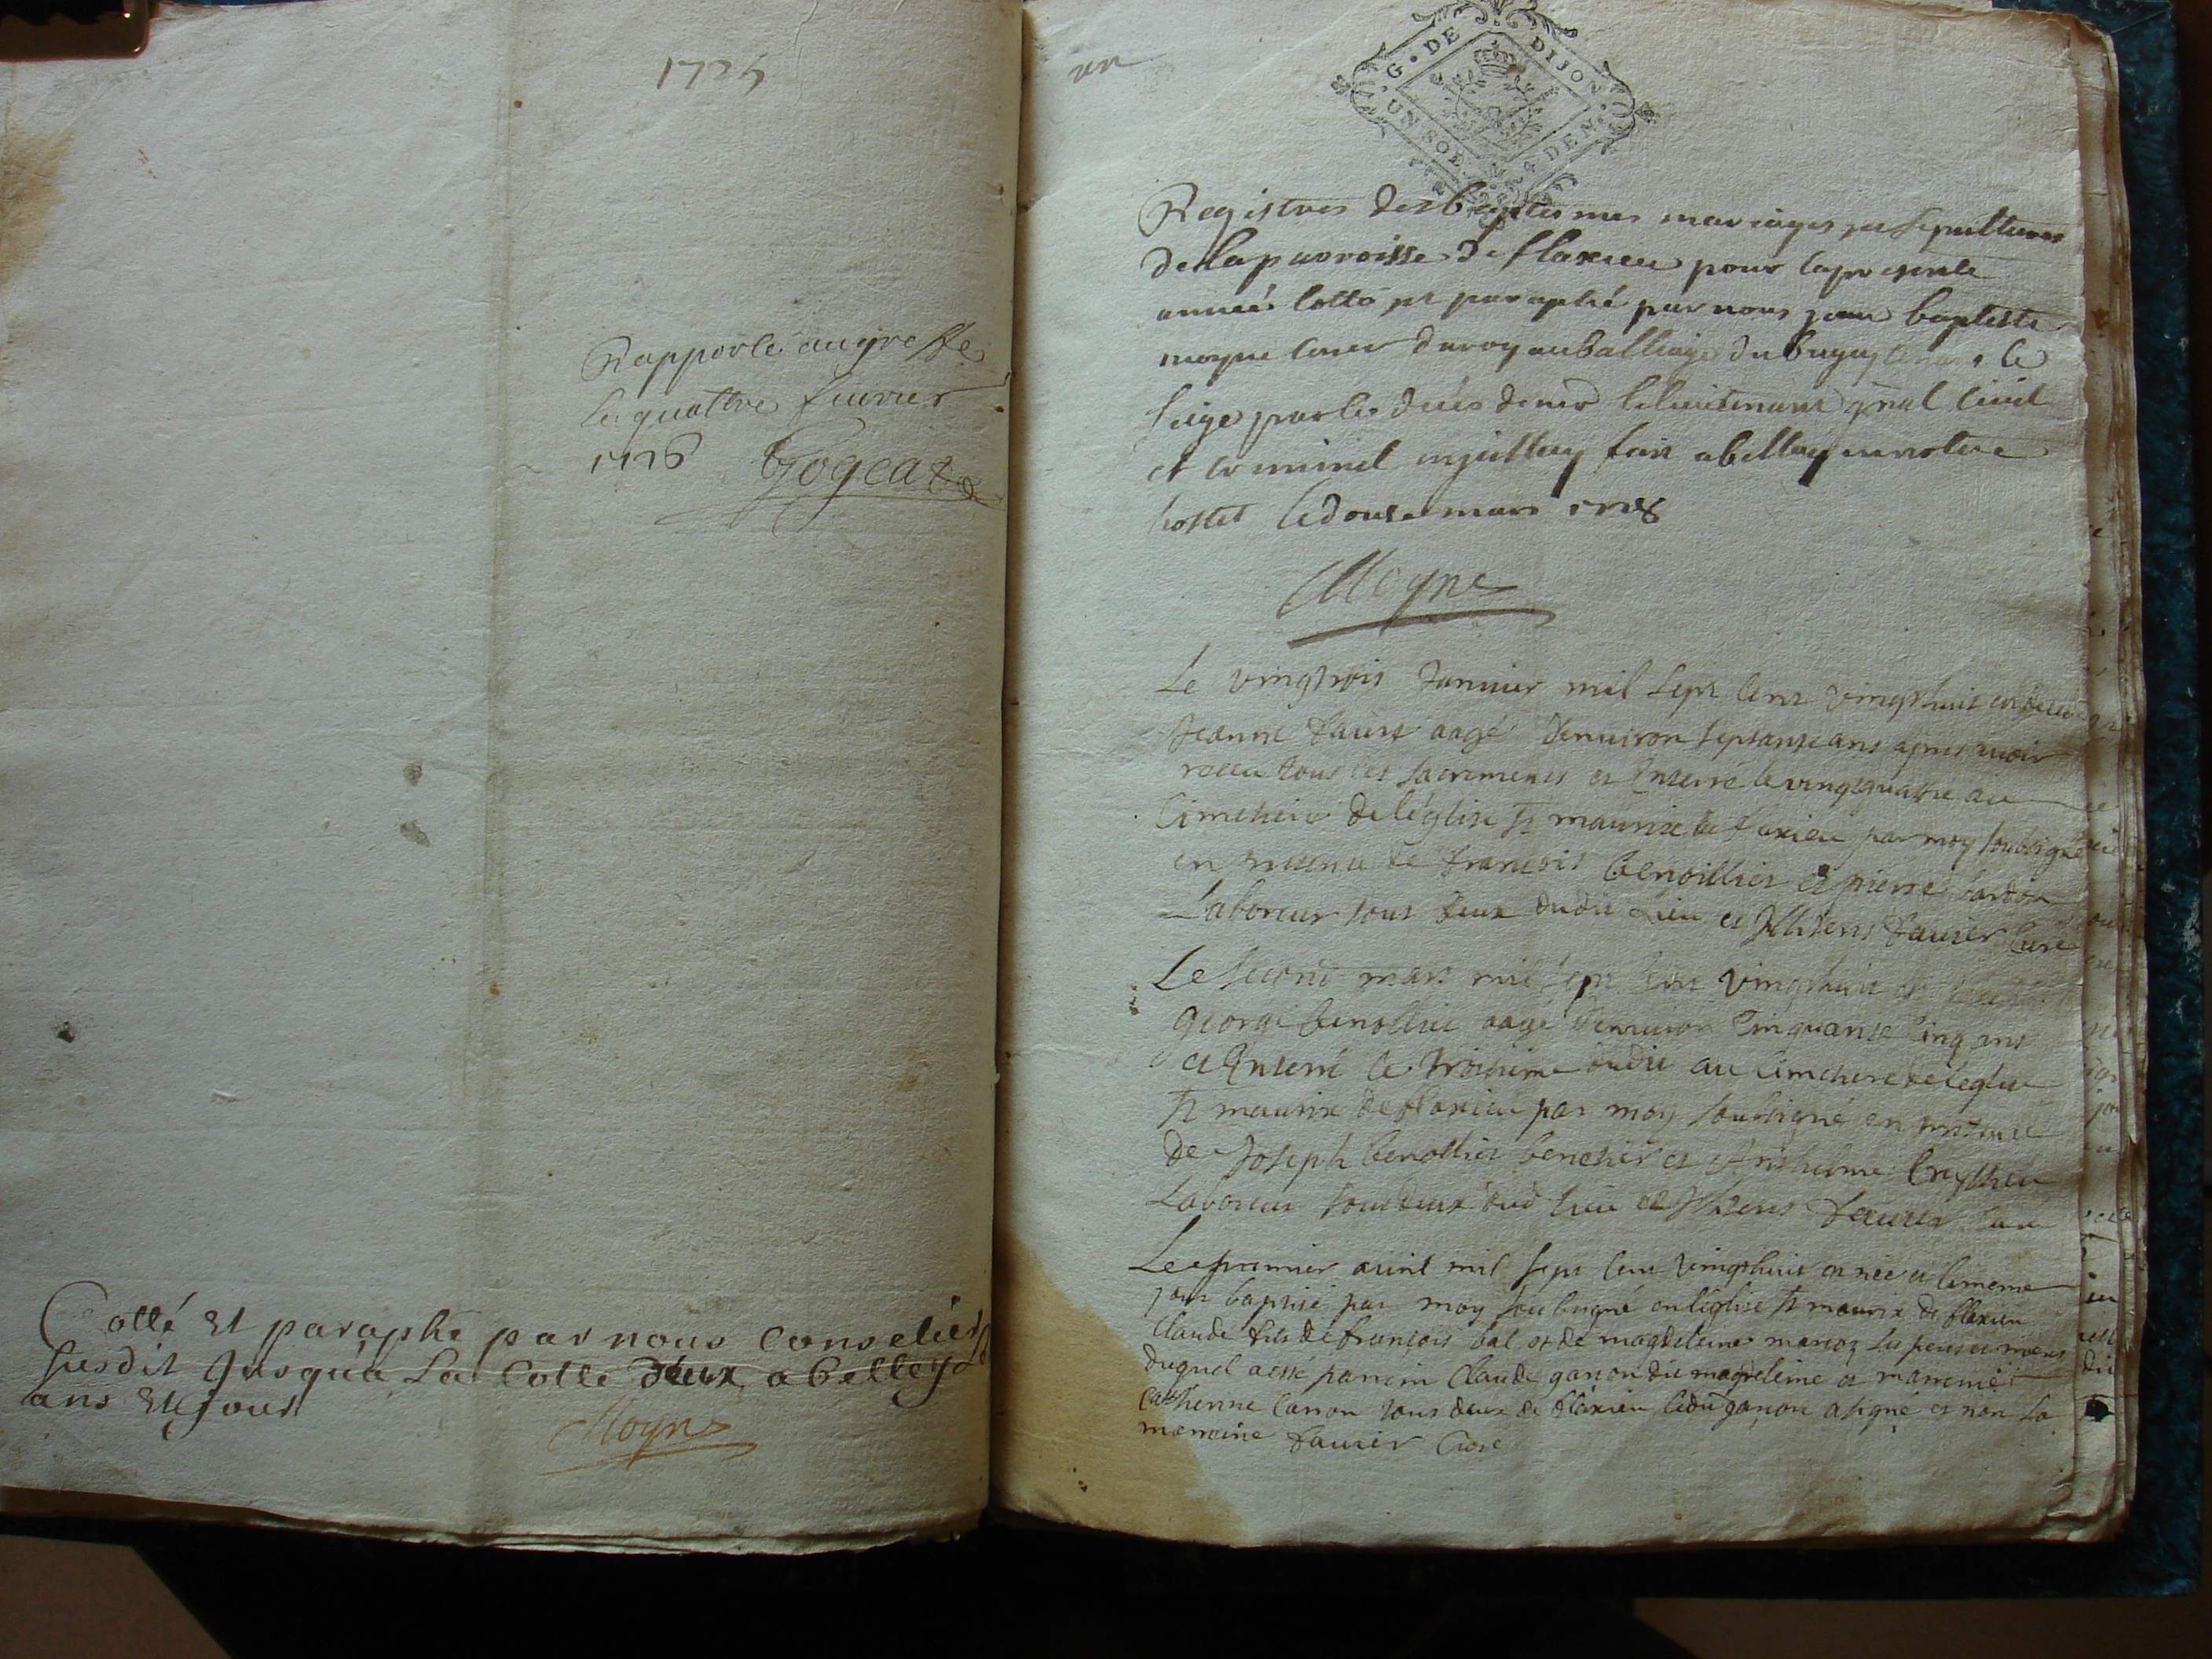 1725
Rapporté au greffe
le quattre feuvrier
1726 Gogeat
Cotté Et paraphé par nous Conselier
susdit Jusqu'a La Cotte deux a belley
ans Et jour
Moyne
un
G. DE DIJON
UN SOL 4 DEN.
Registres des baptesmes mariages et sepultures
de la parroisse de flaxieu pour la presente
année Cotté et paraphé par nous jean baptiste
moyne Coner du roy au balliage du bugey le
siege par les decés de mr le lieutenant gnal Civil
et criminel fait a belley en nostre
hostel le douse mars
Moyne
Le vingtrois Janvier mil sept Cent vingthuit est
Jeanne aagé denviron septante ans apres avoir
receu tous les sacrements et Enterré le vingtquatre au
Cimetiere de l'église St maurice de flaxieu par moy soubsigné
en presence de francois benoillier et pierre
Laboreur tous deux dudit Lieu et Illiterés favier Curé
Le second mars mil sept Cent vingthuit est
George benollier aagé denviron Cinquante Cinq ans
et Enterré le troisieme dudit au Cimetiere de leglise
St maurice de flaxieu par moy soubsigné en presence
de Joseph benollier et
Laboreur tous deux dud Lieu et Illiterés favier Curé
Le premier avril mil sept Cent vingthuit est née et le meme
jour baptisé par moy soubsigné en léglise St maurice de flaxieu
Claude fils de françois bal et de magdeleine ses pere et mere
duquel a esté parrein Claude ganon dit magdeleine et marreine
Catherine Canon tous deux de flaxieu ledit ganon a signé et non la
marreine favier Curé